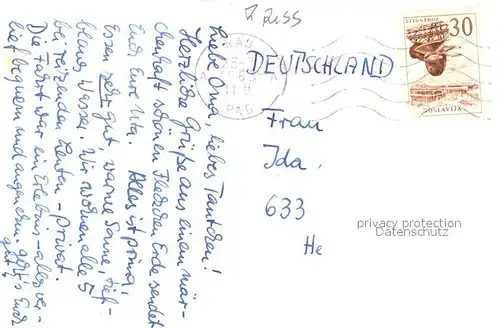 Liebe Oma, liebes Tantchen!
Herzliche Grüße aus einem mär-
chenhaft schönen Fleckchen Erde sendet
Euch Eure Uta. Alles ist prima,
Essen sehr gut, warme Sonne, tief-
blaues Wasser. Wir wohnen alle 5
bei reizenden Leuten - Privat.
Die Fahrt war ein Erlebnis - alles ver-
lief bequem und angenehm. Geht's Euch
gut?
DEUTSCHLAND
Frau
Ida
633
He
30
JUGOSLAVIJA
privacy protection
Datenschutz